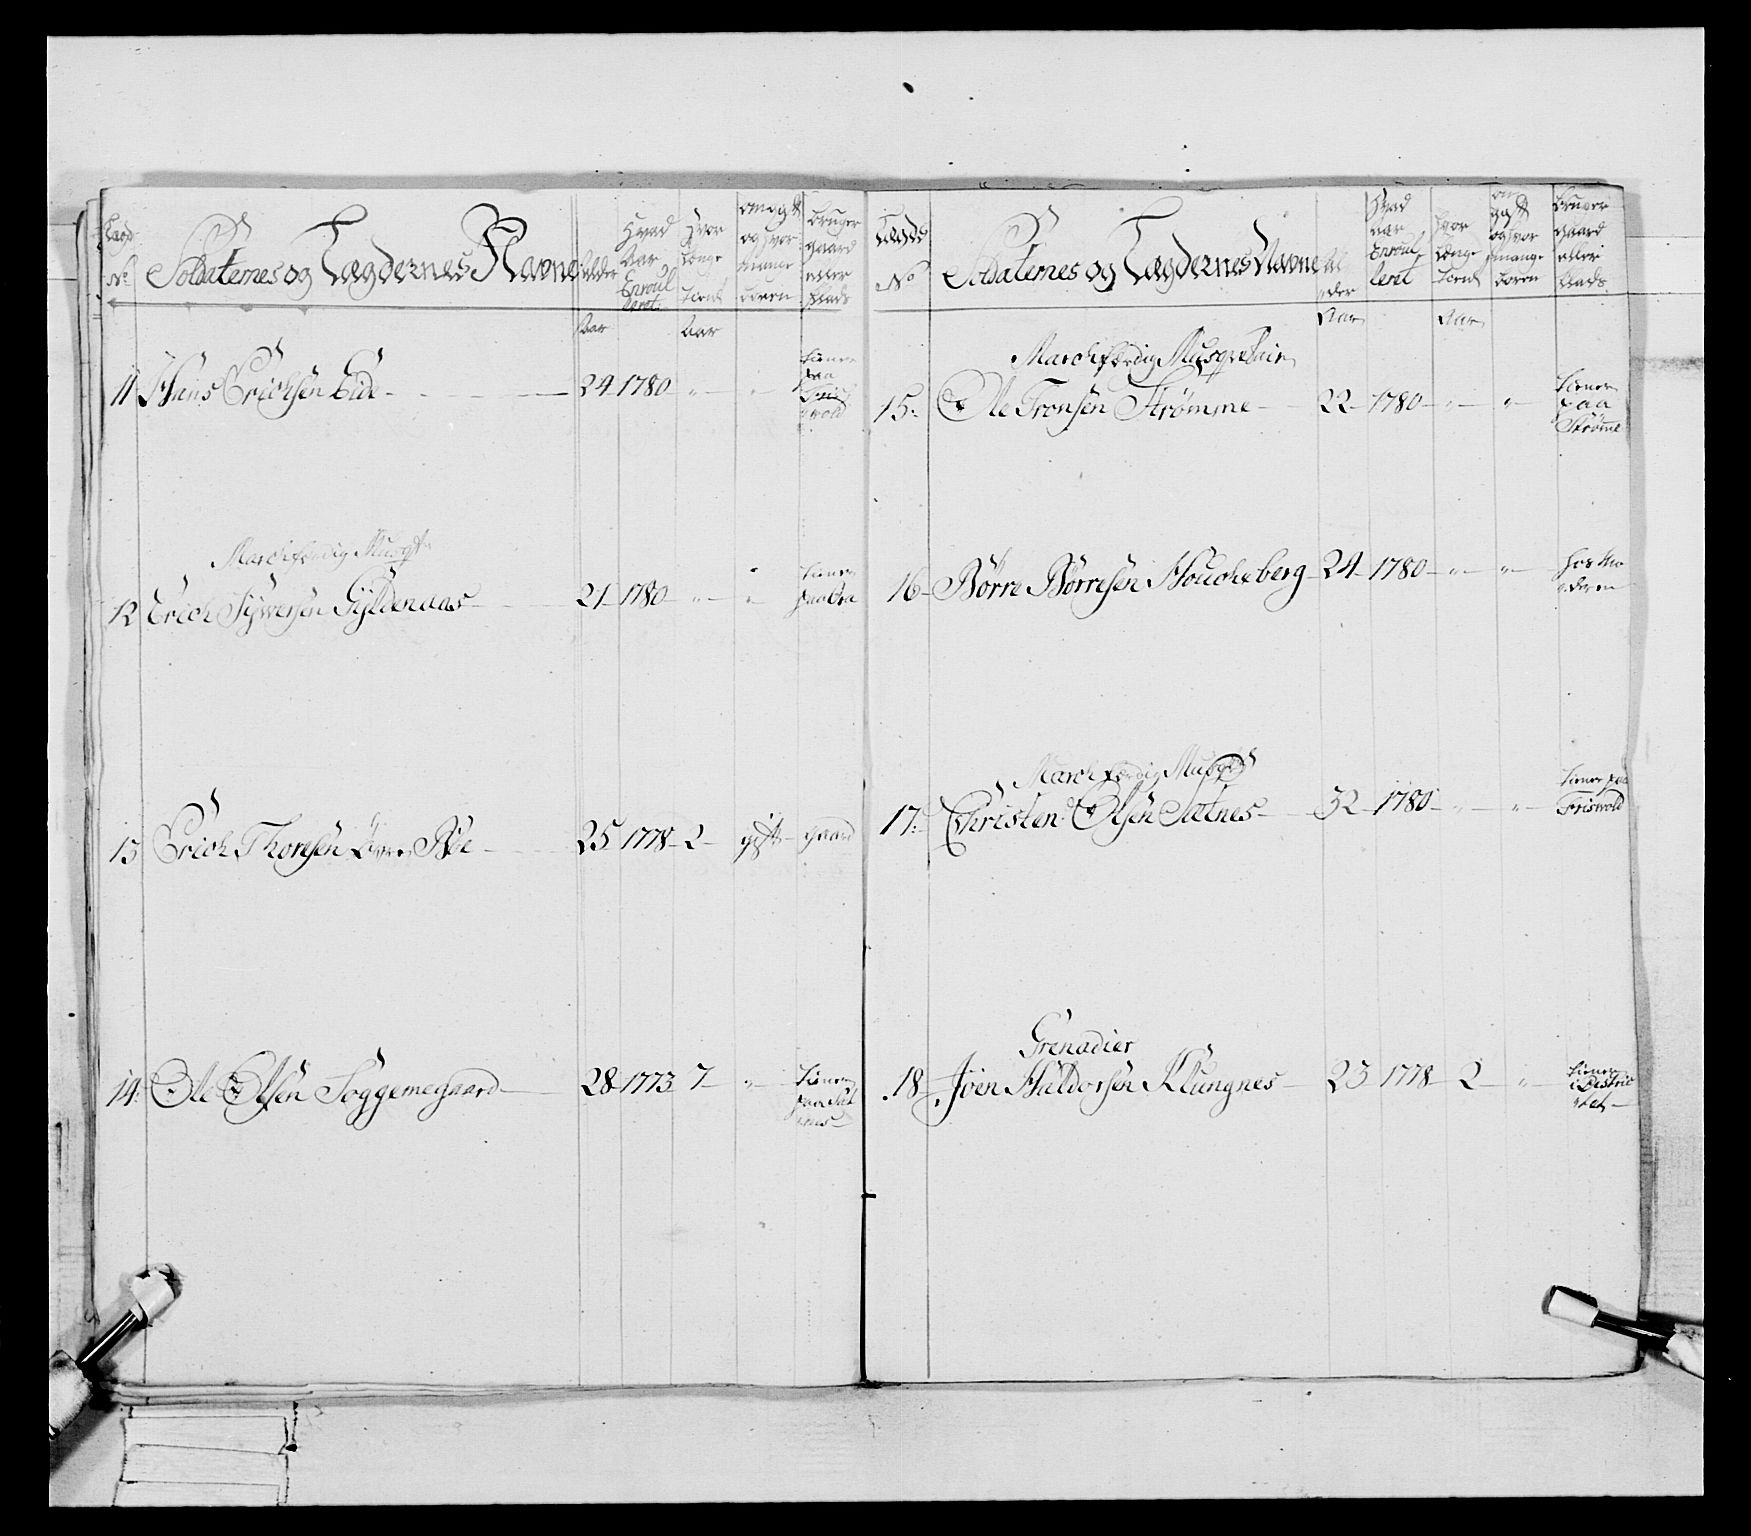 Lægd No Soldaternes og Lægdernes Navne Alder Hvad Aar Enroulleret Hvor længe tient om gift og hvor mange børen bruger gaard eller Plads
Aar Aar
11 Hans Erichsen Eide 24 1780 " " tiener paa Friswold
Marchfærdig Musqt
12 Erich Sÿwersen Gÿldenaas 21 1780 " " tiener paa
13 Erich Thoresen Øvre Bøe 25 1778 2 gift gaard
14 Ole Olsen Soggemegaard 28 1773 7 " tiener paa Sætnes
Lægds No Soldaternes og Lægdernes Navne Alder Hvad aar Enroulleret hvor længe tient om gift og hvor mange børen bruger gaard eller Plads
Aar Aar
Marchfærdig Musqveteer
15 Ole Tronsen Strømme 22 1780 " " tiener paa Strømme
16 Børre Børresen Houcheberg 24 1780 " " hos Moderen
Marchfærdig Musqt
17 Christen Olsen Sætnes 32 1780 " " tiener paa Friswold
Grenadier
18 Joen Haldorsen Klungnes 23 1778 2 " tiener i Destrictet